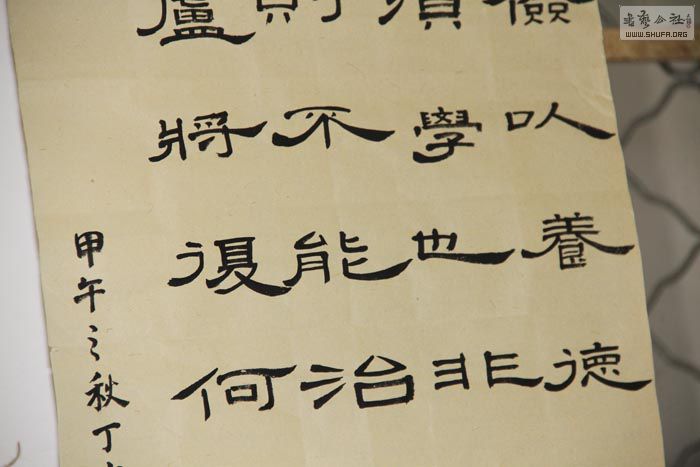 儉以養德
須學也非
則不能治
廬將復何
甲午之秋丁
書藝公社
WWW.SHUFA.ORG